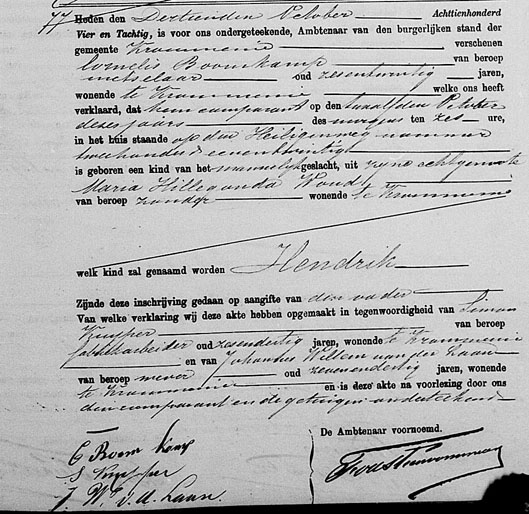 77 Heden den Dertienden October Achttienhonderd
Vier en Tachtig, is voor ons ondergeteekende, Ambtenaar van den burgerlijken stand der
gemeente Krommenie verschenen
Cornelis Boomkamp van beroep
metselaar oud zesentwintig jaren,
wonende te Krommenie welke ons heeft
verklaard, dat hem comparant op den twaalfden October
dezes jaars des morgens ten zes ure,
in het huis staande op den Heiligenweg nummer
tweehonderd eenentwintig
is geboren een kind van het mannelijk geslacht, uit zijne echtgenoote
Maria Hillegonda Woud
van beroep zonder wonende te Krommenie
welk kind zal genaamd worden Hendrik
Zijnde deze inschrijving gedaan op aangifte van den vader
Van welke verklaring wij deze akte hebben opgemaakt in tegenwoordigheid van Simon
Kuyper van beroep
fabriekarbeider oud zesendertig jaren, wonende te Krommenie
en van Johannes Willem van der Laan
van beroep wever oud zevenendertig jaren, wonende
te Krommenie en is deze akte na voorlezing door ons
den comparant en de getuigen onderteekend
De Ambtenaar voornoemd.
C Boom kamp
S Kuyper
J. W. v. d. Laan